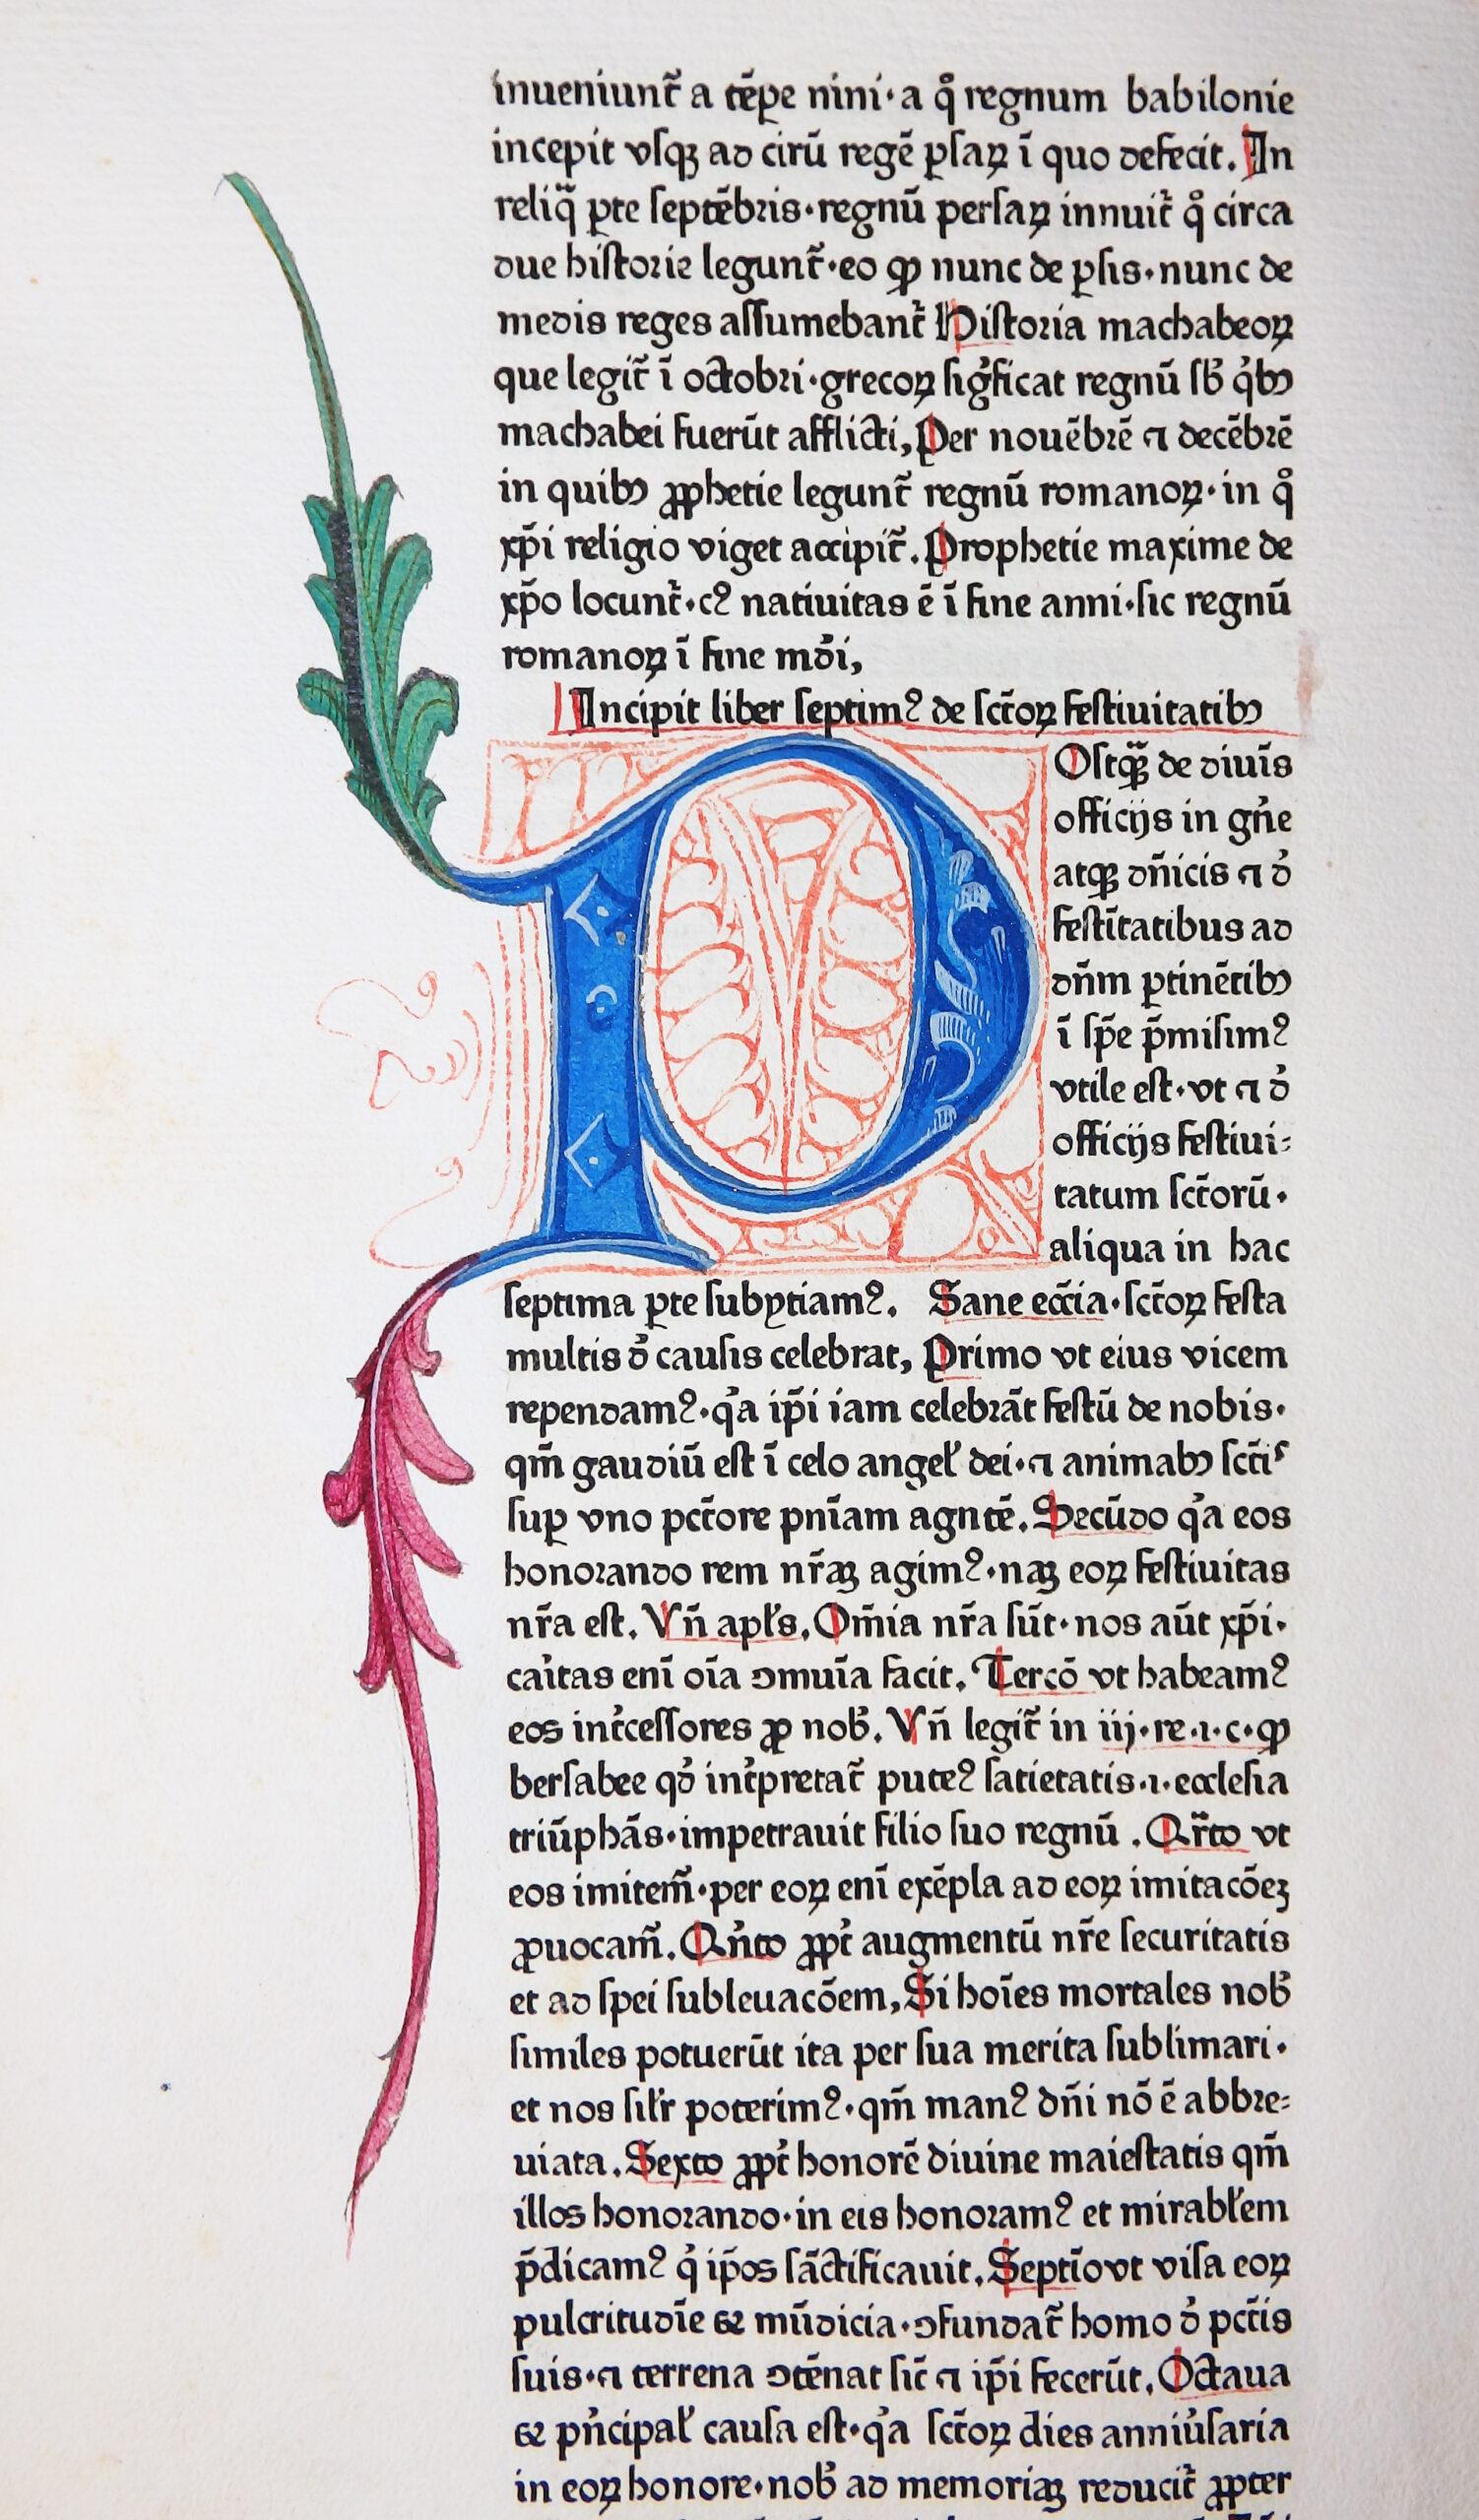 inueniunt᷑ a tēꝑe nini·a qͦ regnum babilonie
incepit vſqꝫ ad cirū regē ꝑſaꝝ ī quo defecit. In
reliq̄ ꝑte ſeptēbꝛis·regnū perſaꝝ innuit᷑ qͦ circa
due hiſtoꝛie legunt᷑·eo ꝙ nunc de ꝑſis·nunc de
medis reges aſſumebant᷑ Hiſtoꝛia machabeoꝝ
que legit᷑ ī octobꝛi·grecoꝝ ſig̉ficat regnū ſb̉ q̉bꝰ
machabei fuerūt afflicti, Per nouēbꝛē ⁊ decēbꝛē
in quibꝰ ꝓphetie legunt᷑ regnū romanoꝝ·in qͦ
xp̄i religio viget accipit᷑. Prophetie maxime de
xp̄o locunt᷑·cꝰ natiuitas ē ī fine anni·ſic regnū
romanoꝝ ī fine mōi,
Incipit liber ſeptimꝰ de ſct̄oꝝ feſtiuitatibꝰ
POſtꝙ̄ de diuīs
officijs in gn̉e
atqꝫ dn̄icis ⁊ d̉
feſtītatibus ad
dn̄m ꝑtinētibꝰ
ī ſp̄e p̄miſimꝰ
vtile eſt·vt ⁊ d̉
officijs feſtiui⸗
tatum ſct̄orū·
aliqua in hac
ſeptima ꝑte ſubꝑtiamꝰ. Sane ecc̄ia·ſct̄oꝝ feſta
multis d̉ cauſis celebrat, Primo vt eius vicem
rependamꝰ·q̉a ip̄i iam celebꝛāt feſtū de nobis·
qm̄ gaudiū eſt ī celo angeł dei·⁊ animabꝰ ſct̄iſ
ſuꝑ vno pct̄ore pnīam agntē. Secūdo q̉a eos
honoꝛando rem nr̄aꝫ agimꝰ·naꝫ eoꝝ feſtiuitas
nr̄a eſt. Vn̄ apłs. Om̄ia nr̄a ſūt·nos aūt xp̄i·
caỉtas enī oīa ꝯmuīa facit. Tercō vt habeamꝰ
eos int̉ceſſores ꝓ nob̉. Vn̄ legit᷑ in iij·re·ı·c·ꝙ
berſabee qd̉ int̉pretat᷑ puteꝰ ſatietatis·ı·eccleſia
triūphās·impetrauit filio ſuo regnū . Qr̄to vt
eos imitem᷑·per eoꝝ enī exēpla ad eoꝝ imitacōeꝫ
ꝓuocam᷑. Qn̉to ꝓpt̉ augmentū nr̄e ſecuritatis
et ad ſpei ſubleuacōem, Si hoīes mortales nob̉
ſimiles potuerūt ita per ſua merita ſublimari·
et nos ſiłr poterimꝰ·qm̄ manꝰ dn̄i nō ē abbꝛe⸗
uiata. Sexto ꝓpt̉ honorē diuine maieſtatis qm̄
illos honoꝛando·in eis honoꝛamꝰ et mirabłem
p̄dicamꝰ q̉ ip̄os ſāctificauit. Septīo vt viſa eoꝝ
pulcritudīe ⁊ mūdicia·ꝯfundat᷑ homo d̉ pct̄is
ſuis·⁊ terrena ꝯtēnat ſic̄ ⁊ ip̄i fecerūt. Octaua
⁊ pn̉cipał cauſa eſt·q̉a ſct̄oꝝ dies anniủſaria
in eoꝝ honore·nob̉ ad memoriaꝫ reducit᷑ ꝓpter